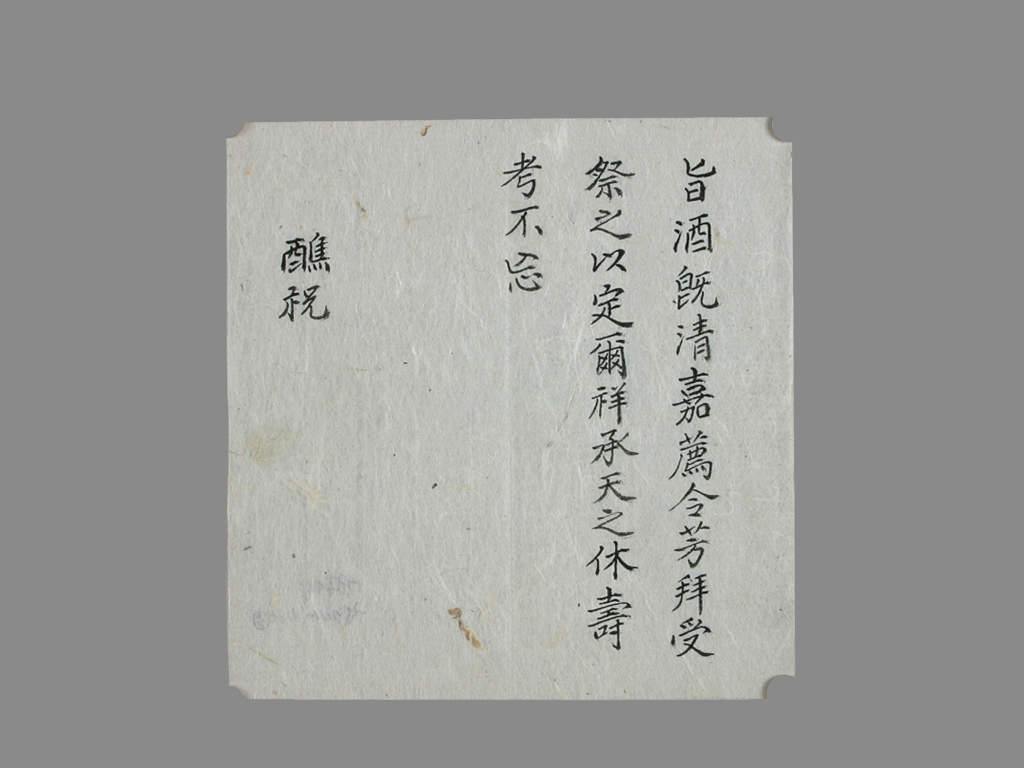 旨酒旣清嘉薦令芳拜受
祭之以定爾祥承天之休壽
考不忘
醮祝